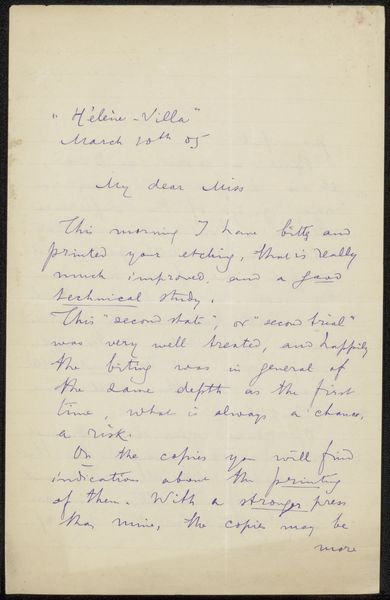 "Hélène-Villa"
March 10th 05
My dear Miss
This morning I have bitts and
printed your etching, that is really
much improved, and a good
technical study.
This "second state", or "second trial"
was very well treated, and happily
the biting was in general of
the same depth as the first
time, what is always a chance,
a risk.
On the copies you will find
indications above the printing
of them. With a stronger press
than mine, the copies may be
more